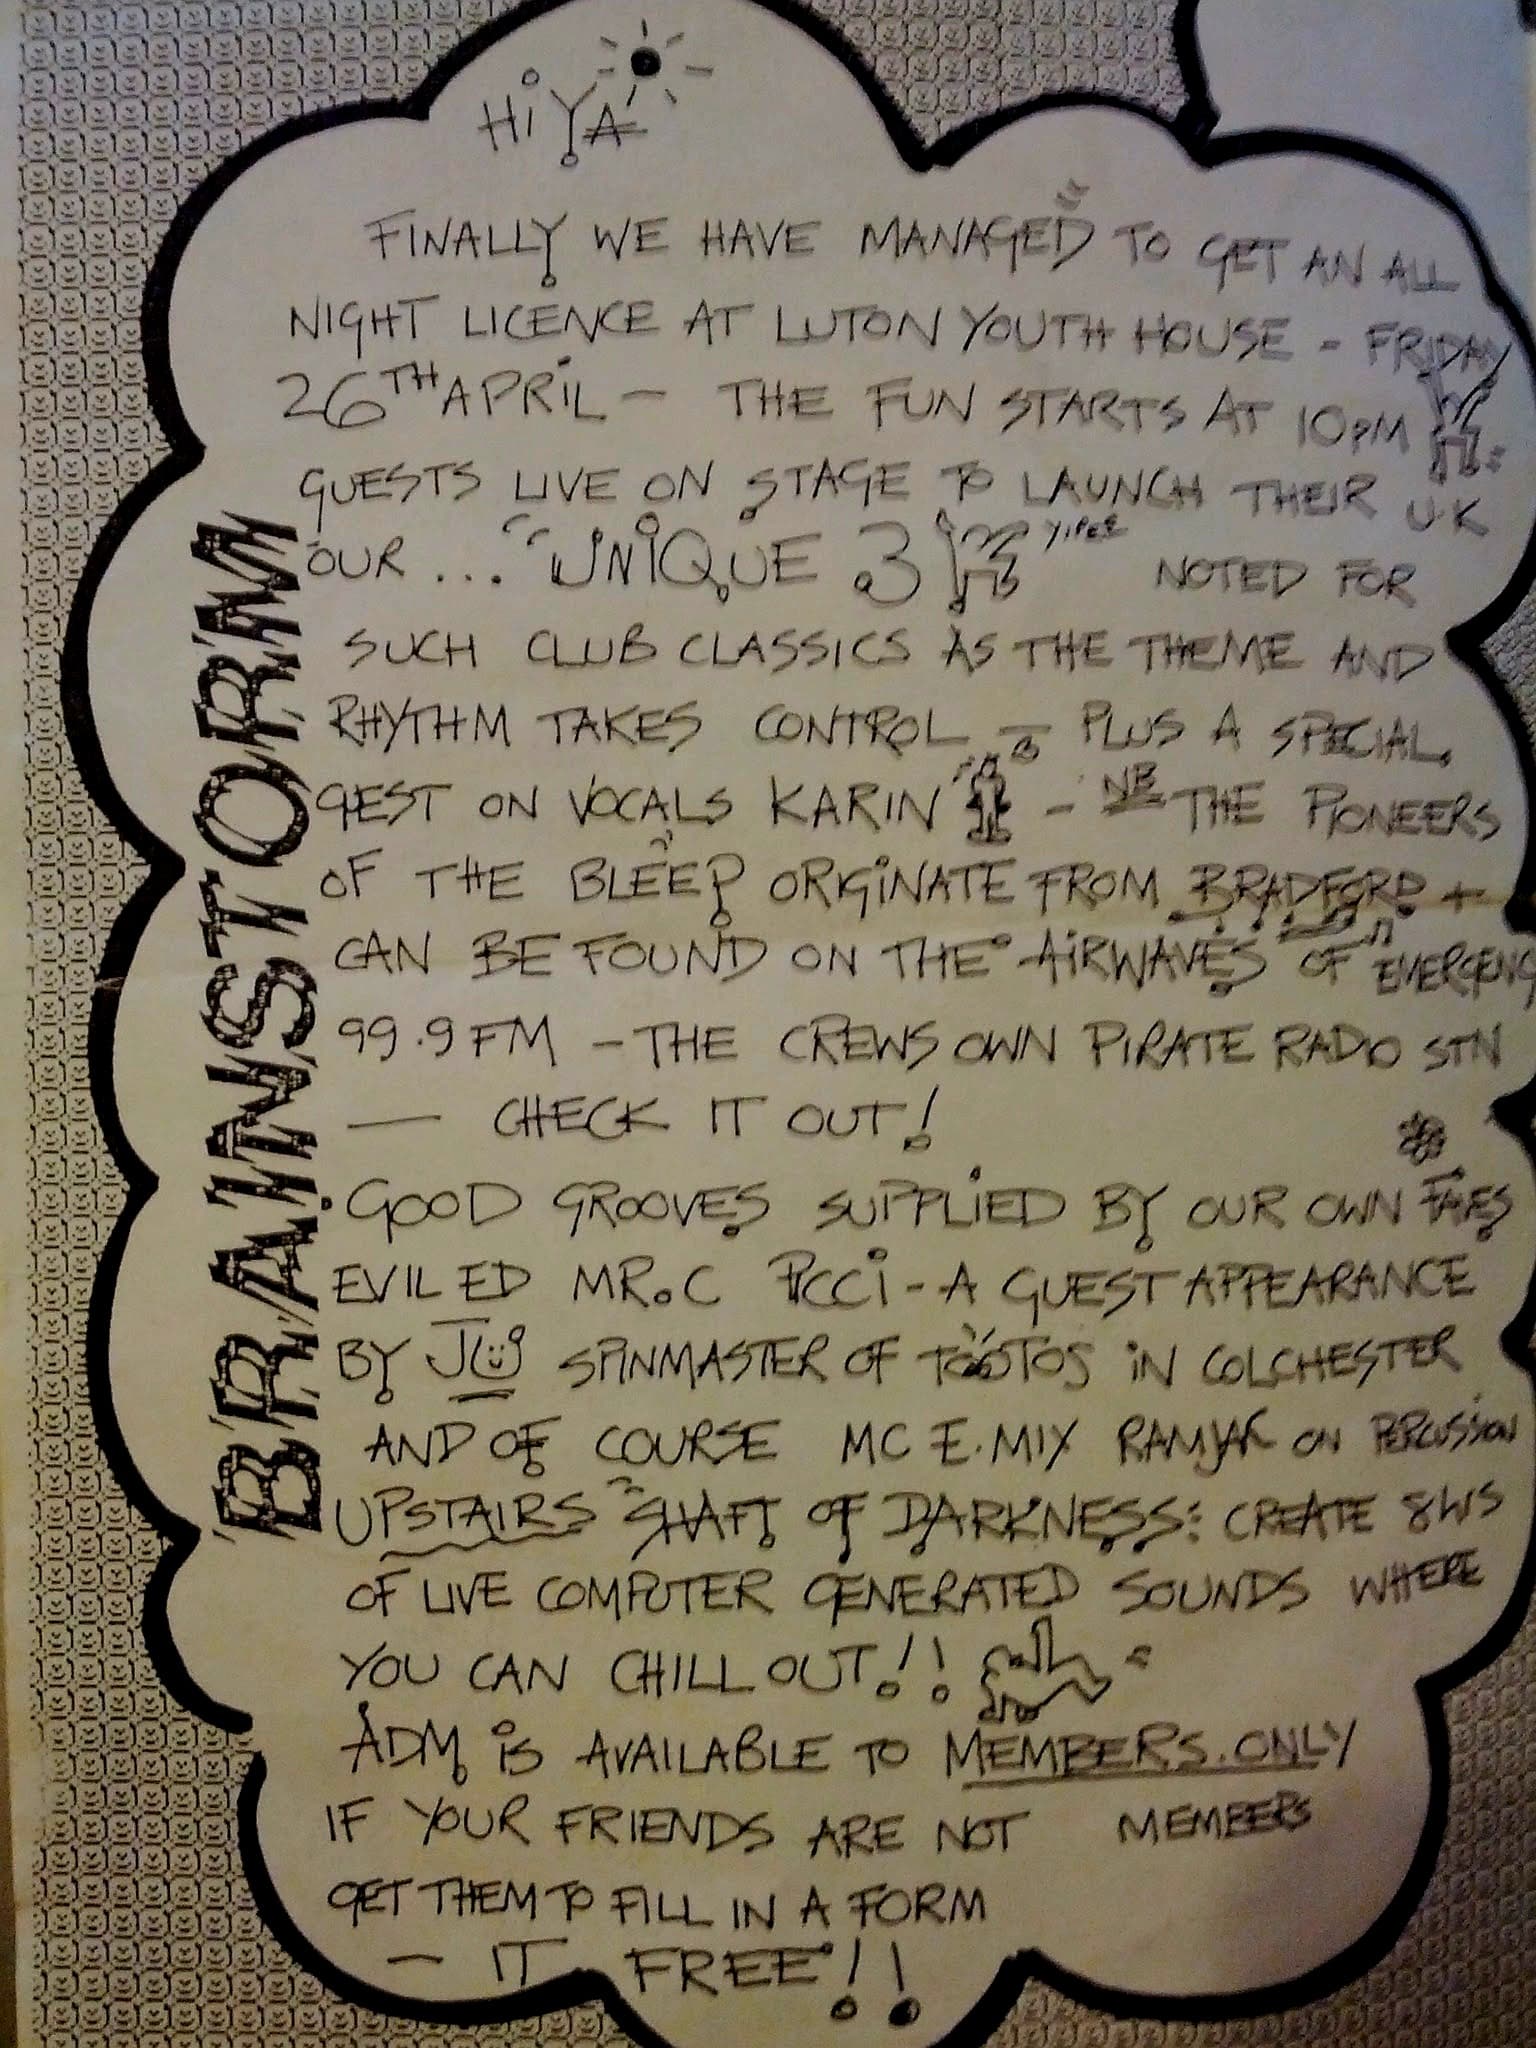 HiYA
FINALLY WE HAVE MANAGED TO GET AN ALL
NIGHT LICENCE AT LUTON YOUTH HOUSE - FRIDAY
26TH APRIL - THE FUN STARTS AT 10PM
GUESTS LIVE ON STAGE TO LAUNCH THEIR U.K
OUR ... "UNIQUE 3 YIPEE NOTED FOR
SUCH CLUB CLASSICS AS THE THEME AND
RHYTHM TAKES CONTROL - PLUS A SPECIAL
GEST ON VOCALS KARIN - NB THE PIONEERS
OF THE BLEEP ORIGINATE FROM BRADFORD +
CAN BE FOUND ON THE AIRWAVES OF EMERGENCY
99.9 FM - THE CREWS OWN PIRATE RADIO STN
— CHECK IT OUT!
GOOD GROOVES SUPPLIED BY OUR OWN
EVIL ED MR.C PICCI - A GUEST APPEARANCE
BY SPINMASTER OF TOOTOS IN COLCHESTER
AND OF COURSE MC E.MIX RAMJAC ON PERCUSSION
UPSTAIRS "SHAFT OF DARKNESS: CREATE 8HRS
OF LIVE COMPUTER GENERATED SOUNDS WHERE
YOU CAN CHILL OUT!!
ADM iS AVAILABLE TO MEMBERS.ONLY
IF YOUR FRIENDS ARE NOT MEMBERS
GET THEM TO FILL IN A FORM
- IT FREE!!
BRAINSTORM